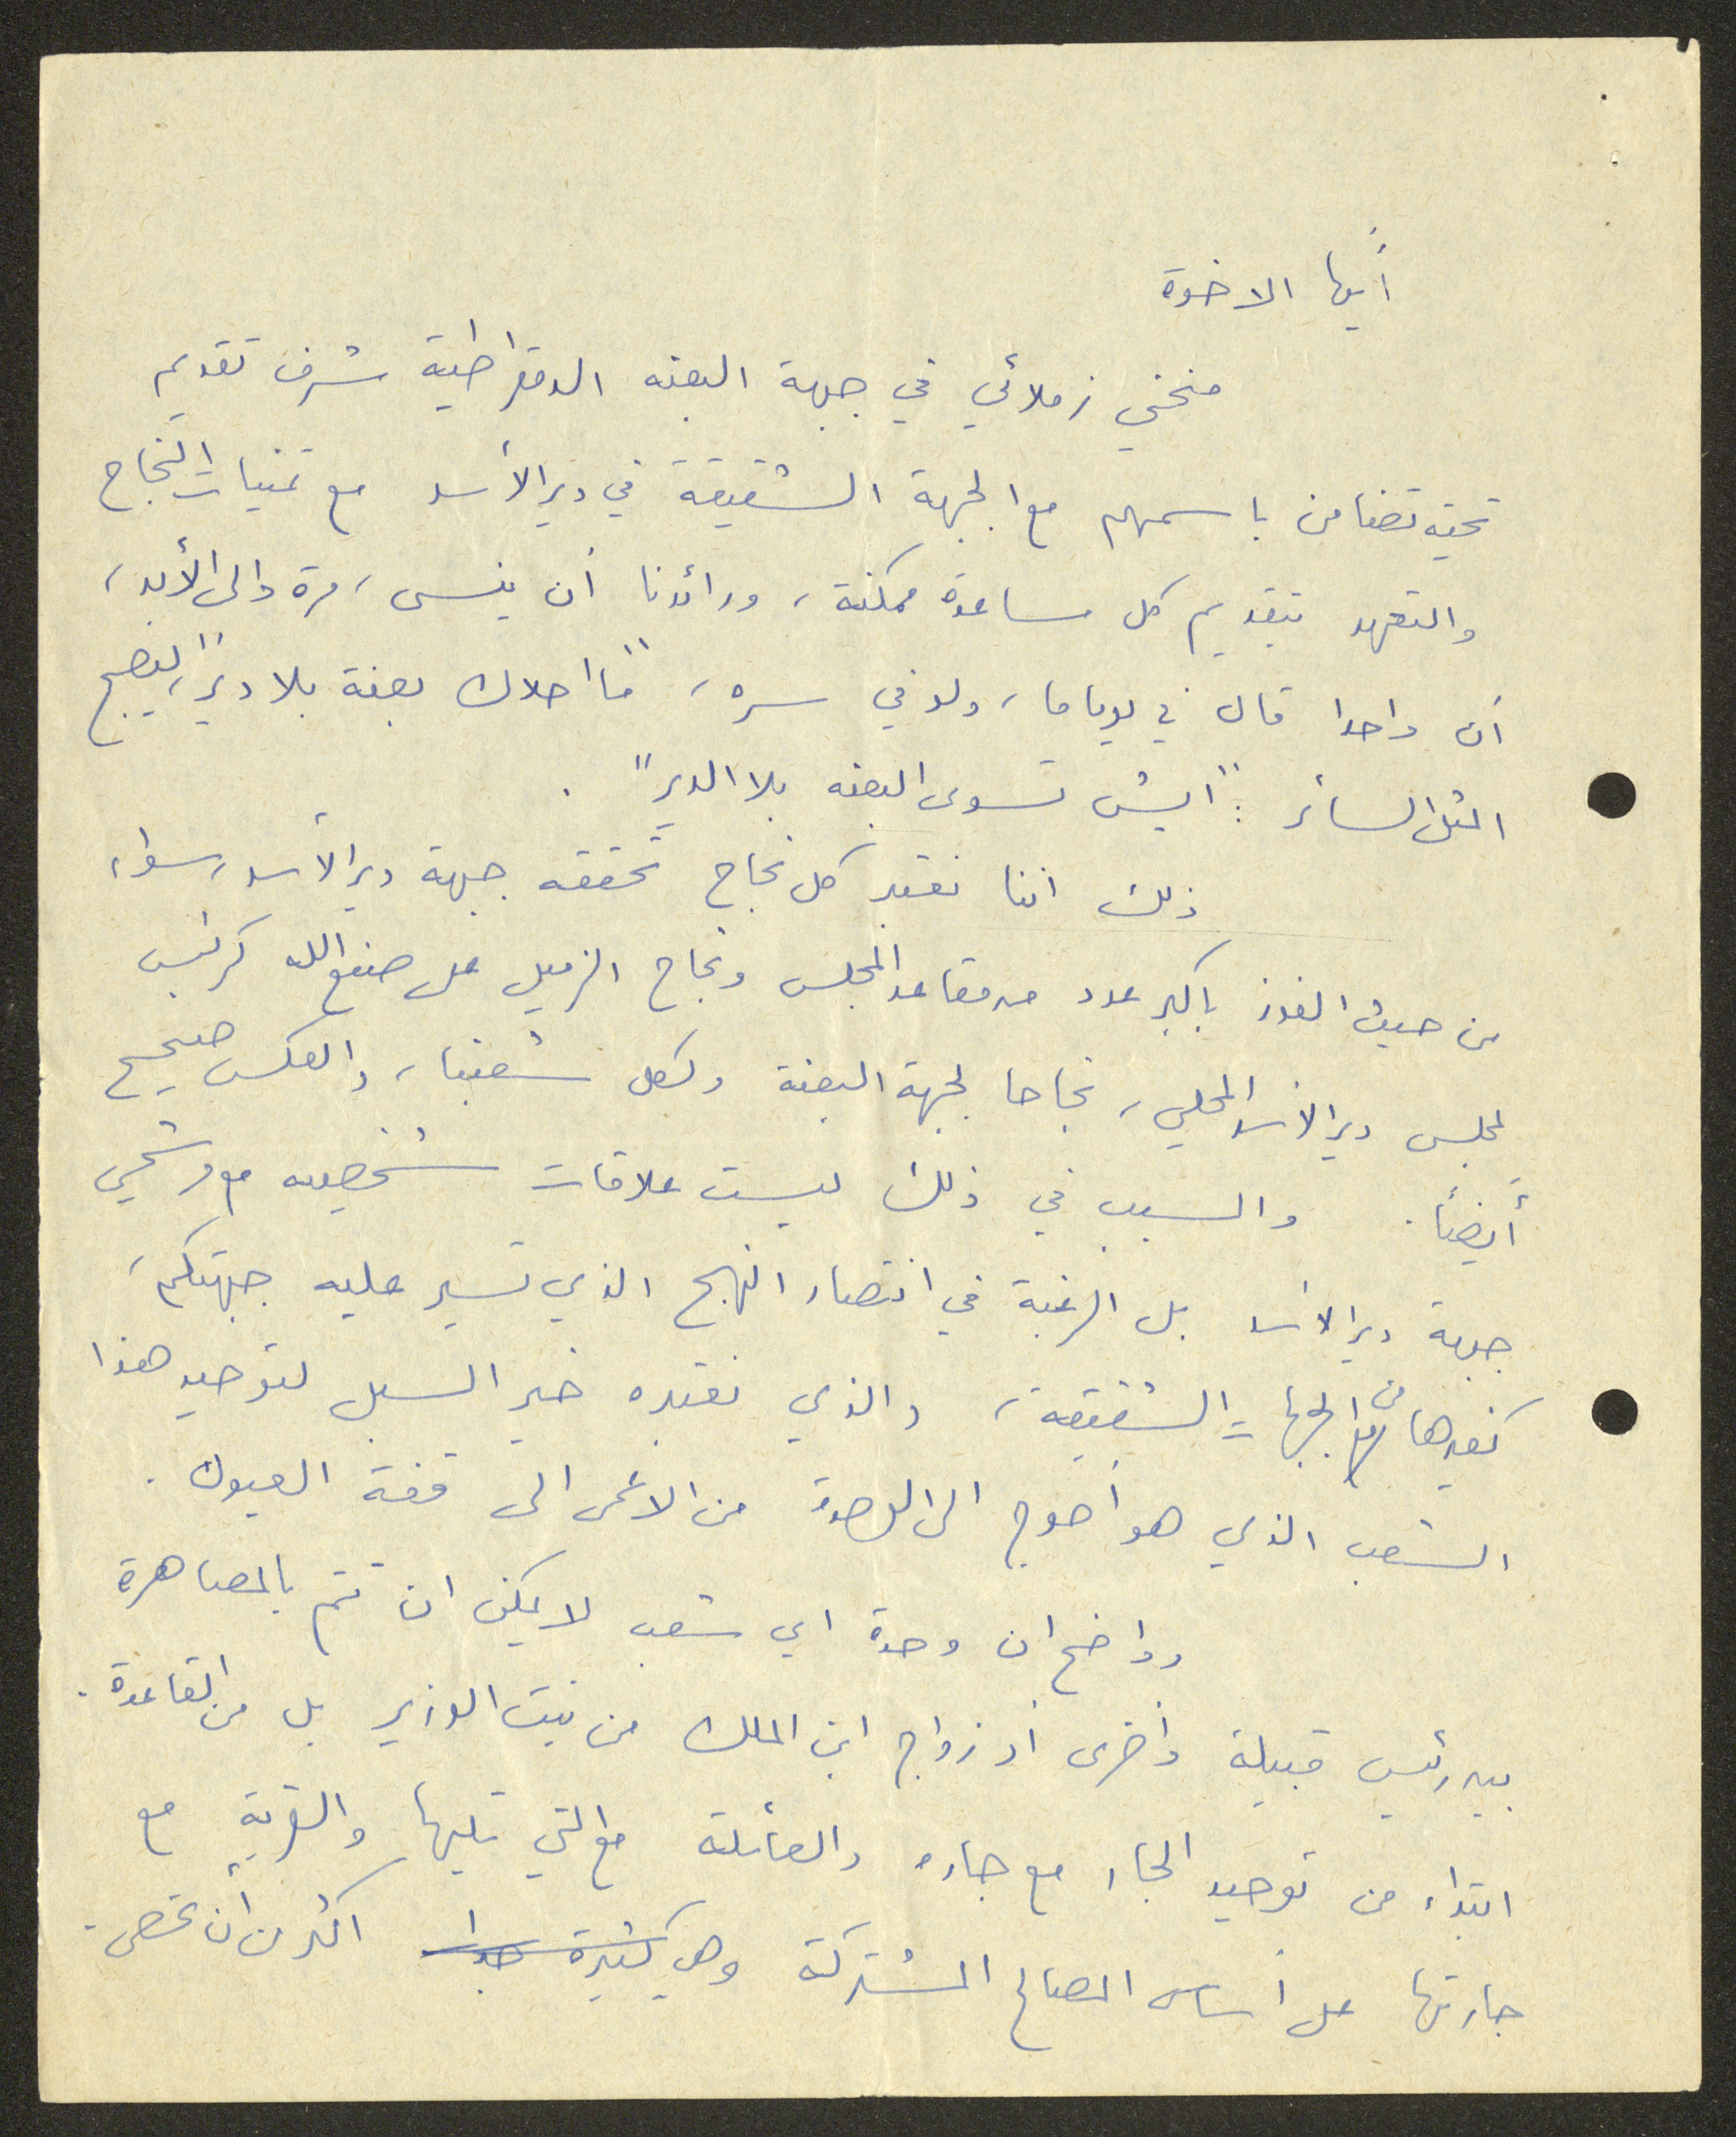 أيها الاخوة
منحني زملائي في جبهة البعنه الدمقراطية شرف تقديم
تحية تضامن باسمهم مع الجبهة الشقيقة في دير الأسد مع تمنيات النجاح
والتعهد بتقديم كل مساعدة ممكنة، ورائدنا أن ينسى، مرة والى الأبد،
أن واحدا قال في يوم ما، ولو في سره، "ما احلاك بعنة بلا دير"، ليصبح
المثل السائر: "ايش تسوى البعنه بلا الدير".
ذلك اننا نعتبر كل نجاح تحققه جبهة دير الأسد، سواء
من حيث الفوز باكبر عدد من مقاعد المجلس ونجاح الزميل علي صنع الله كرئيس
لمجلس دير الأسد المحلي، نجاحا لجبهة البعنة ولكل شعبنا، والعكس صحيح
أيضاً. والسبب في ذلك ليست علاقات شخصيه مع مرشحي
جبهة دير الأسد بل الرغبة في انتصار النهج الذي تسير عليه جبهتكم،
كغيرها من الجبهات الشقيقة، والذي نعتبره خير السبل لتوحيد هذا
الشعب الذي هو أحوج الى الوحدة من الاعمى الى قفة العيون.
وواضح ان وحدة اي شعب لا يمكن ان تتم بالمصاهرة
بين رئيس قبيلة وأخرى أو زواج ابن الملك من بنت الوزير بل من القاعدة.
ابتداء من توحيد الجار مع جاره والعائلة مع التي تليها والقرية مع
جارتها على أساس المصالح المشتركة وهي كثيرة جدا اكثر من أن تحصى.